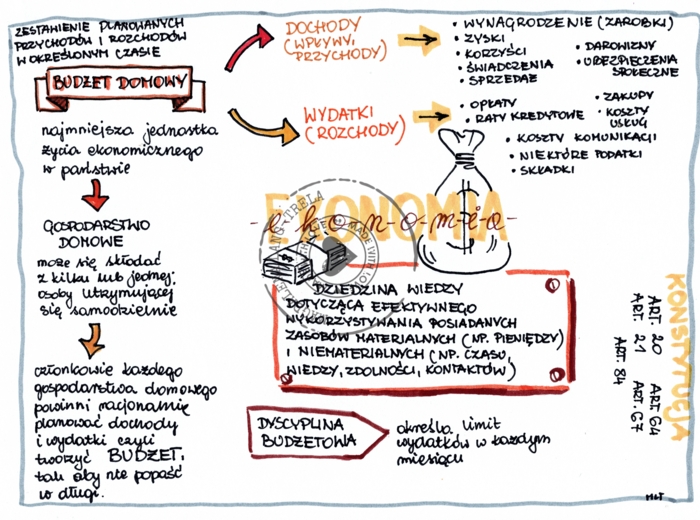 ZESTAWIENIE PLANOWANYCH
PRZYCHODÓW I ROZCHODÓW
W OKREŚLONYM CZASIE
BUDŻET DOMOWY
najmniejsza jednostka
życia ekonomicznego
w państwie
GOSPODARSTWO
DOMOWE
może się składać
z kilku lub jednej
osoby utrzymującej
się samodzielnie
członkowie każdego
gospodarstwa domowego
powinni racjonalnie
planować dochody
i wydatki czyli
tworzyć BUDŻET,
tak aby nie popaść
w długi.
DOCHODY
(WPŁYWY,
PRZYCHODY)
• WYNAGRODZENIE (ZAROBKI)
• ZYSKI
• KORZYŚCI
• ŚWIADCZENIA
• SPRZEDAŻ
• DAROWIZNY
• UBEZPIECZENIA
SPOŁECZNE
WYDATKI
(ROZCHODY)
• OPŁATY
• RATY KREDYTOWE
• ZAKUPY
• KOSZTY
USŁUG
• KOSZTY KOMUNIKACJI
• NIEKTÓRE PODATKI
• SKŁADKI
EKONOMIA
-e-k-o-n-o-m-i-a-
$
MADE WITH
DZIEDZINA WIEDZY
DOTYCZĄCA EFEKTYWNEGO
WYKORZYSTYWANIA POSIADANYCH
ZASOBÓW MATERIALNYCH (NP. PIENIĘDZY)
I NIEMATERIALNYCH (NP. CZASU,
WIEDZY, ZDOLNOŚCI, KONTAKTÓW)
DYSCYPLINA
BUDŻETOWA
określa limit
wydatków w każdym
miesiącu
KONSTYTUCJA
ART. 20 ART. 64
ART. 21 ART. 67
ART. 84